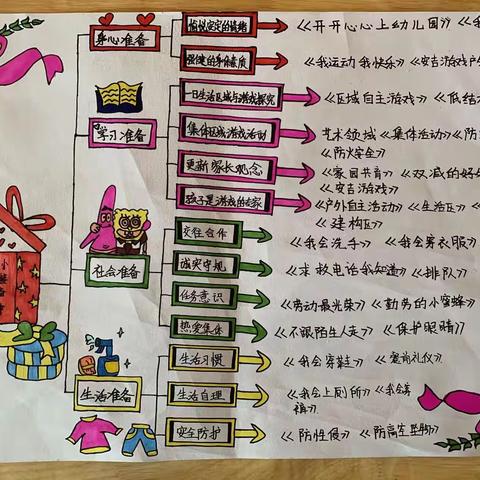 身心准备
愉悦安定的情绪
《开开心心上幼儿园》《我
强健的身体素质
《我运动我快乐》《安吉游戏户
学习准备
一日生活区域与游戏探究
《区域自主游戏》《低结
集体区域游戏活动
艺术领域《集体活动》《防
《防火安全》
更新家长观念
《家园共育》《双减的好处
《安吉游戏》
孩子是游戏的专家
《户外自主活动》《生活区》《
《建构区》
社会准备
交往合作
《我会洗手》《我会穿衣服》
诚实守规
《求救电话我知道》《排队》
任务意识
《劳动最光荣》《勤劳的小蜜蜂》
热爱集体
《不跟陌生人走》《保护眼睛》
生活准备
生活习惯
《我会穿鞋》《餐前礼仪》
生活自理
《我会上厕所》《我会穿
裤》
安全防护
《防性侵》《防高空坠物》